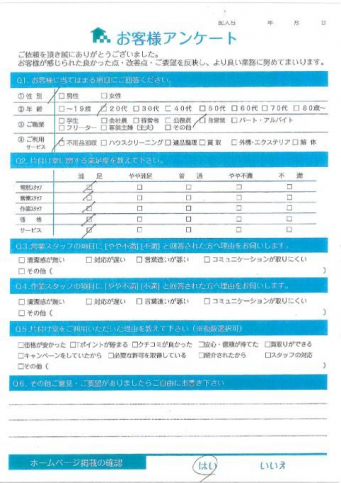 記入日　年　月　日
お客様アンケート
ご依頼を頂き誠にありがとうございました。
お客様が感じられた良かった点・改善点・ご要望を反映し、より良い業務に努めてまいります。
Q1. お客様に当てはまる項目にご回答ください。
①性 別 □男性 □女性
②年 齢 □～19歳 □20代 □30代 □40代 □50代 □60代 □70代 □80歳～
③ご職業 □学生 □会社員 □経営者 □公務員 □自営業 □パート・アルバイト
□フリーター □専業主婦（主夫） □その他
④ご利用サービス □不用品回収 □ハウスクリーニング □遺品整理 □買取 □外構・エクステリア □解体
Q2. 片付け堂に関する満足度を教えて下さい。
満足 やや満足 普通 やや不満 不満
電話スタッフ □ □ □ □ □
営業スタッフ □ □ □ □ □
作業スタッフ □ □ □ □ □
価格 □ □ □ □ □
サービス □ □ □ □ □
Q3.営業スタッフの項目に[やや不満][不満]と回答された方へ理由をお伺いします。
□清潔感が無い □対応が遅い □言葉遣いが悪い □コミュニケーションが取りにくい
□その他（
Q4.作業スタッフの項目に[やや不満][不満]と回答された方へ理由をお伺いします。
□清潔感が無い □対応が遅い □言葉遣いが悪い □コミュニケーションが取りにくい
□その他（
Q5.片付け堂をご利用いただいた理由を教えて下さい（※複数選択可）
□価格が安かった □Tポイントが貯まる □クチコミが良かった □安心・信頼が持てた □買取りができる
□キャンペーンをしていたから □必要な許可を取得している □紹介されたから □スタッフの対応
□その他（
Q6. その他ご意見・ご要望がありましたらご自由にお書き下さい
ホームページ掲載の確認 はい いいえ